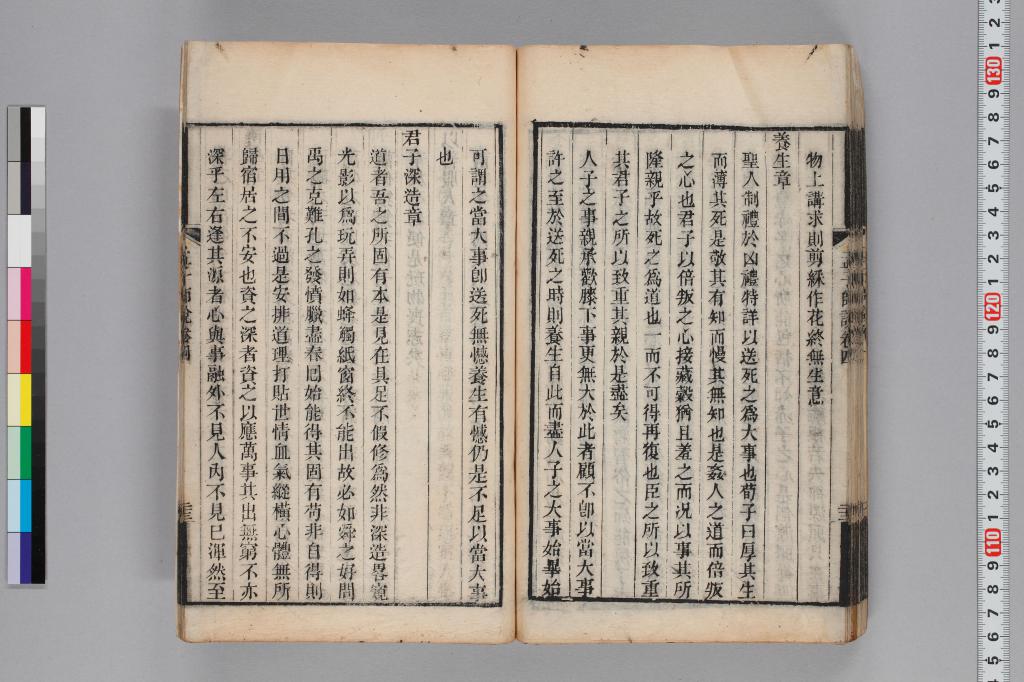 物上講求則剪綵作花終無生意
養生章
聖人制禮於凶禮特詳以送死之爲大事也荀子曰厚其生
而薄其死是敬其有知而慢其無知也是姦人之道而倍叛
之心也君子以倍叛之心接臧穀猶且羞之而況以事其所
隆親乎故死之爲道也一而不可得再復也臣之所以致重
其君子之所以致重其親於是盡矣
人子之事親承歡膝下事更無大於此者顧不卽以當大事
許之至於送死之時則養生自此而盡人子之大事始畢始
可謂之當大事卽送死無憾養生有憾仍是不足以當大事
也
君子深造章
道者吾之所固有本是見在具足不假修爲然非深造畧窺
光影以爲玩弄則如蜂觸紙窗終不能出故必如舜之好問
禹之克艱孔之發憤臘盡春囘始能得其固有苟非自得則
日用之間不過是安排道理打貼世情血氣縱橫心體無所
歸宿居之不安也資之深者資之以應萬事其出無窮不亦
深乎左右逢其源者心與事融外不見人內不見已渾然至
孟子師說卷四